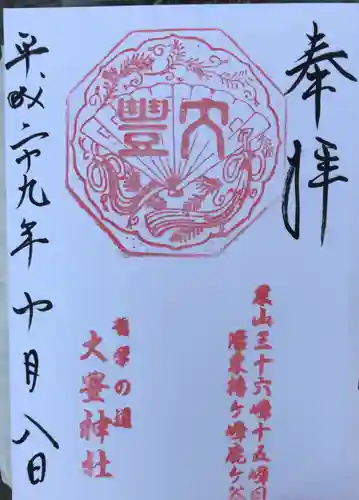 奉拝
東山三十六峰十五峰目
洛東椿ケ峰鹿ケ谷
大豐
哲学の道
大豊神社
平成二十九年十月八日